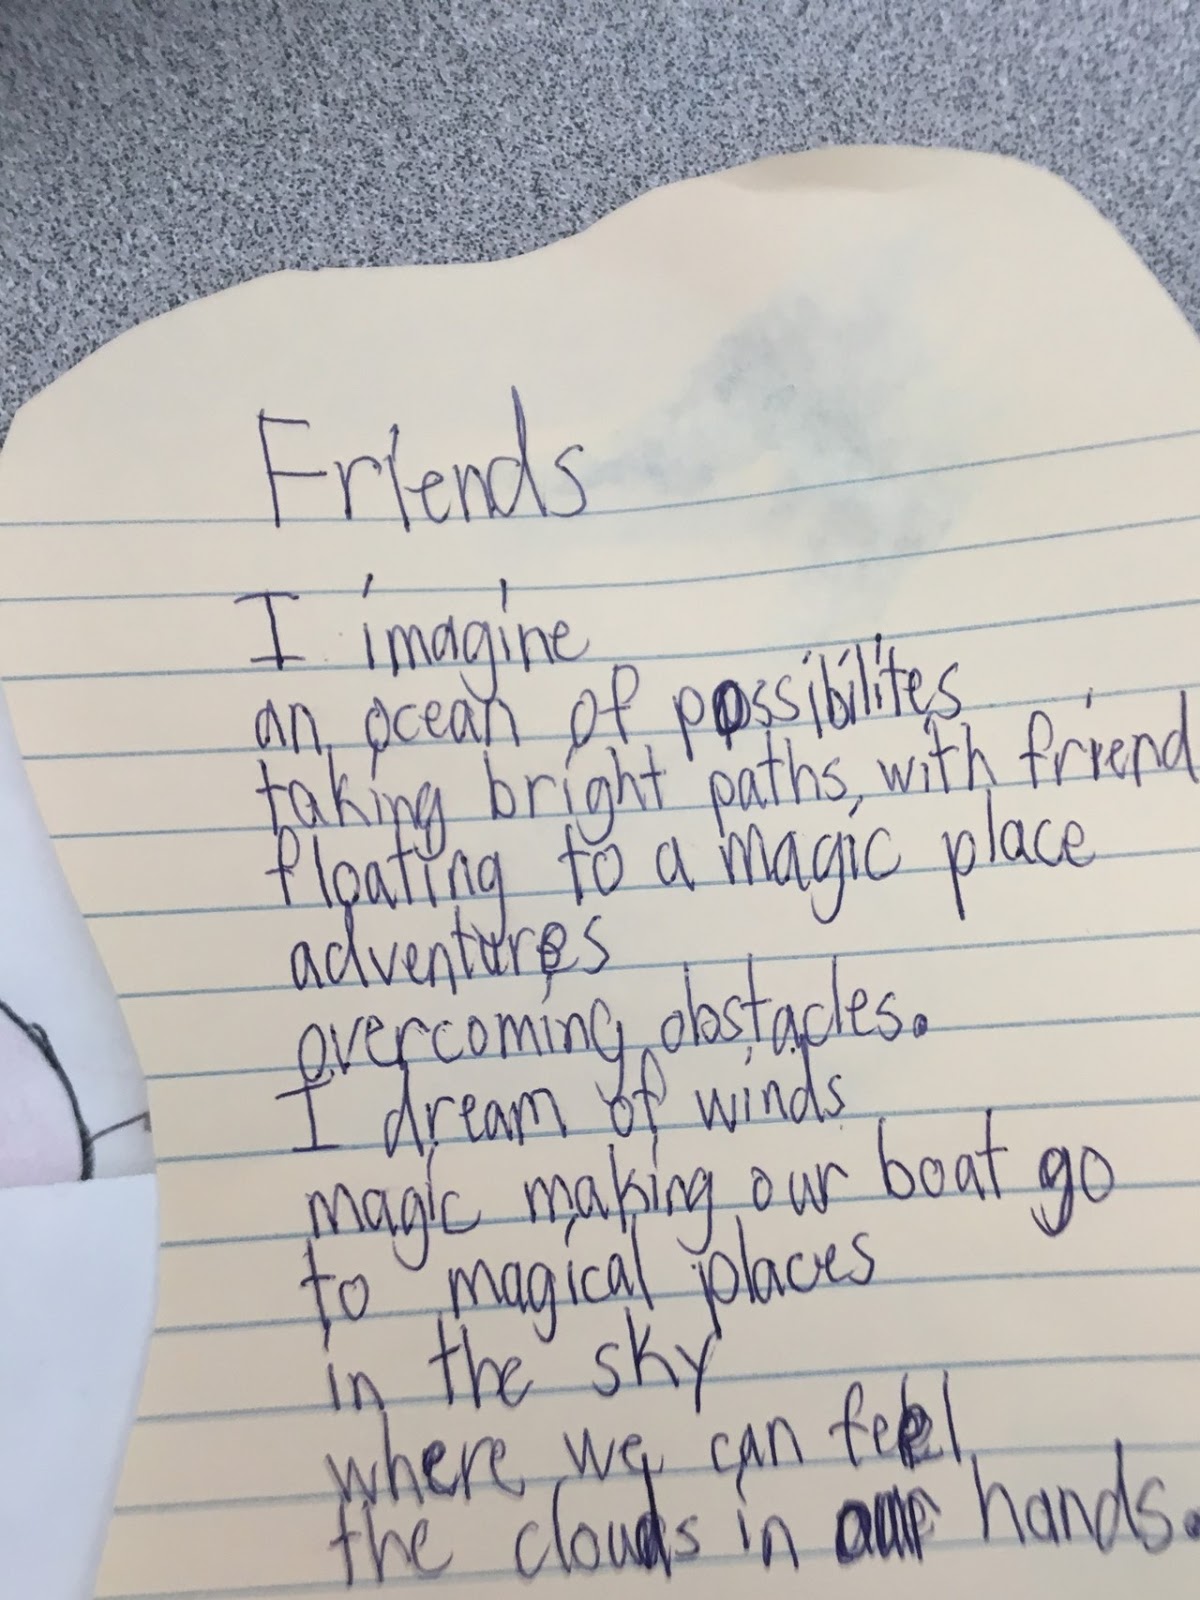 Friends
I imagine
an ocean of possibilites
taking bright paths, with friend
floating to a magic place
adventures
overcoming obstacles.
I dream of winds
magic making our boat go
to magical places
in the sky
where we can feel
the clouds in our hands.